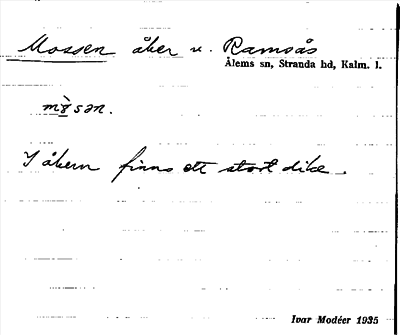 Mossen åker u. Ramsås
Ålems sn, Stranda hd, Kalm. l.
mòsən.
I åkern finns ett stort dike.
Ivar Modéer 1935